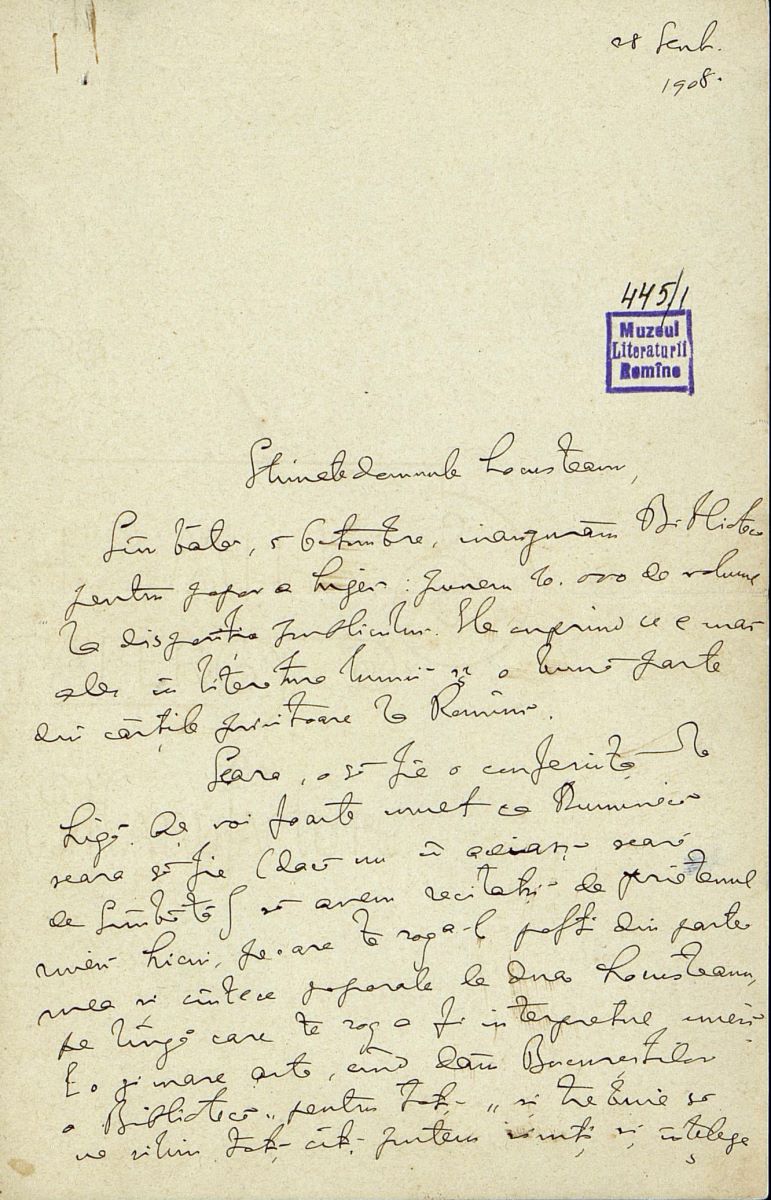 28 Sept.
1908.
445/1
Muzeul
Literaturii
Romîne
Stimate domnule Locusteanu,
Sîmbăta, 5 Octombre, inaugurăm Biblioteca
pentru popor a Ligei: punem 10.000 de volume
la dispoziția publicului. Ele cuprind ce e mai
ales în literatura lumii și o bună parte
din cărțile privitoare la Români.
Seara, o să fie o conferință la
Ligă. Aș voi foarte mult ca Duminecă
seara să fie (dacă nu în aceiași seară
de Sîmbătă) să avem recitații de prietenul
mieu Liciu, pe care te rog a-l pofti din partea
mea și cîntece poporale de dna Locusteanu,
pe lîngă care te rog a fi interpretul mieu.
E o zi mare asta, cînd dăm Bucureștilor
o Bibliotecă „pentru toți” și trebuie să
ne silim toți cîți putem simți și înțelege